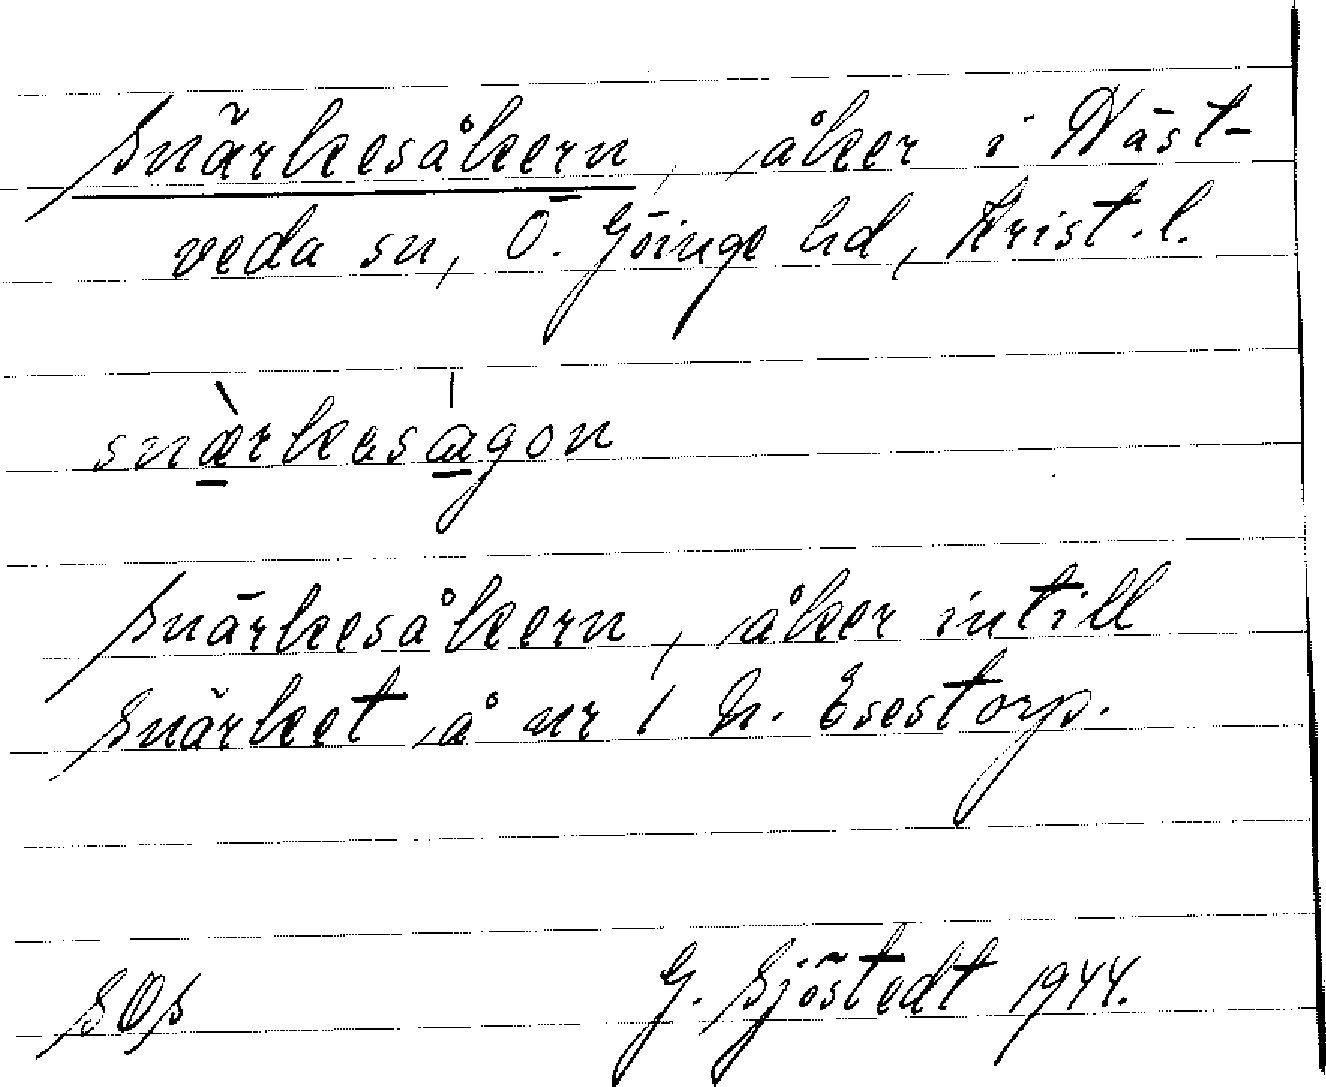 Snärkesåkern, åker i Näst-
veda sn, Ö. Göinge hd, Krist. l.
snærkəsagon
Snärkesåkern, åker intill
Snärket å nr 1 N. Esestorp.
SOS G. Sjöstedt 1944.